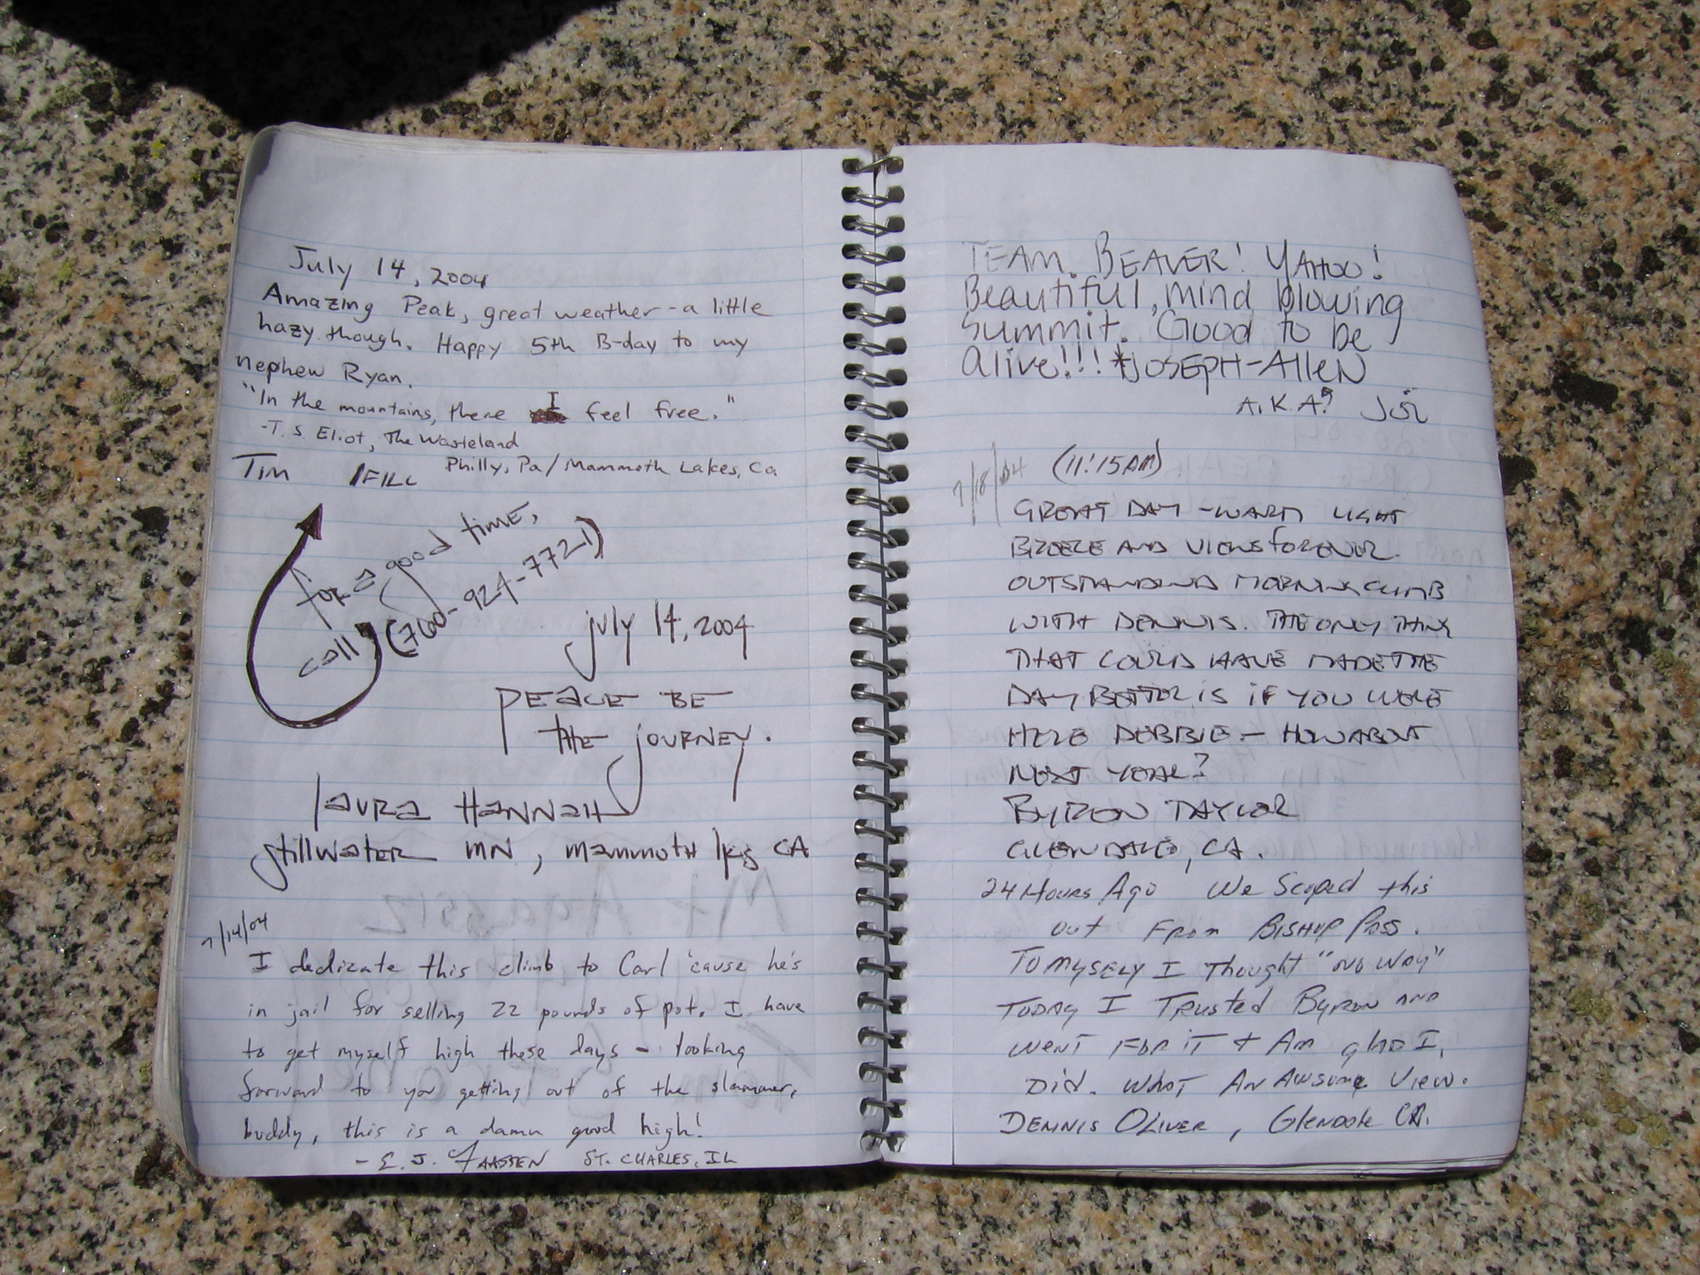 July 14, 2004
Amazing Peak, great weather - a little
hazy though. Happy 5th B-day to my
nephew Ryan.
"In the mountains, there I feel free."
-T. S. Eliot, The Wasteland
Tim IFILL Philly, Pa/Mammoth Lakes, Ca
for a good time,
call (760-924-7721)
july 14, 2004
PEACE BE
THE JOURNEY.
Laura Hannah
Stillwater MN, mammoth lks CA
7/14/04
I dedicate this climb to Carl 'cause he's
in jail for selling 22 pounds of pot. I have
to get myself high these days - looking
forward to you getting out of the slammer,
buddy, this is a damn good high!
- E. J. FAASSEN ST. CHARLES, IL
TEAM BEAVER! YAHOO!
Beautiful, mind blowing
summit. Good to be
alive!!! *JOSEPH-AllEN
A.K.A.
7/18/04 (11:15AM)
GREAT DAY - WARM LIGHT
BREEZE AND VIEWS FOREVER.
OUTSTANDING MORNING CLIMB
WITH DENNIS. THE ONLY THING
THAT COULD HAVE MADE THE
DAY BETTER IS IF YOU WERE
HERE DEBBIE - HOW ABOUT
NEXT YEAR?
BYRON TAYLOR
GLENDALE, CA.
24 Hours Ago We Scoped this
out From BISHOP PASS.
TO MYSELY I Thought "NO WAY"
TODAY I Trusted Byron AND
went FOR IT + Am glad I
DID. WHAT AN AWSUME VIEW.
DENNIS OLIVER, Glendale CA.
Mt Agassiz